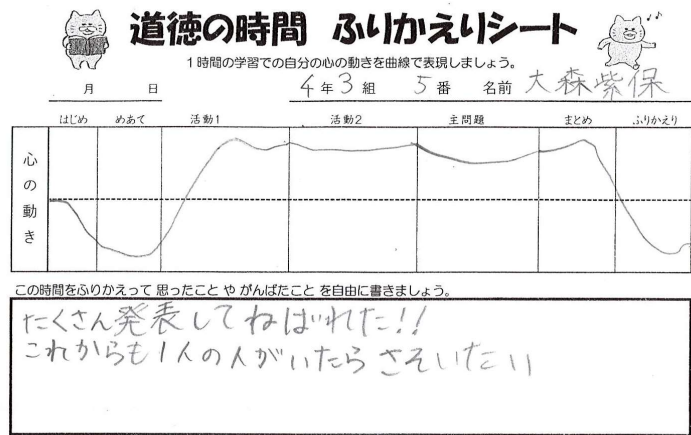 道徳の時間 ふりかえりシート
1時間の学習での自分の心の動きを曲線で表現しましょう。
月 日 4年3組 5番 名前 大森紫保
はじめ めあて 活動1 活動2 主問題 まとめ ふりかえり
心の動き
この時間をふりかえって 思ったこと や がんばたこと を自由に書きましょう。
たくさん発表してねばれた!!
これからも1人の人がいたらさそいたい